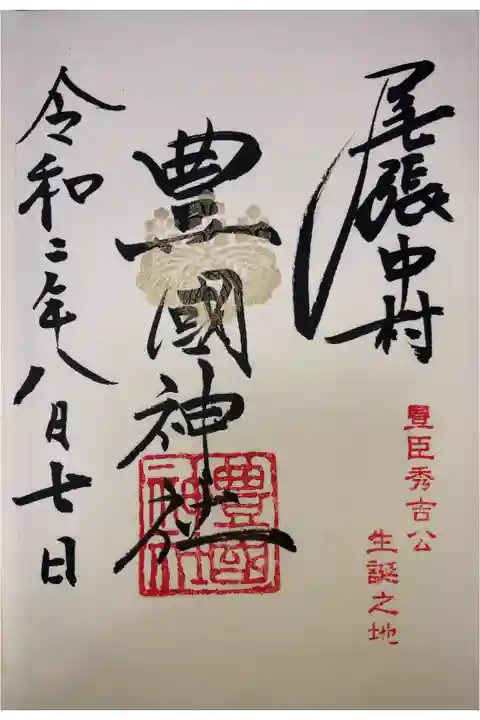 尾張中村
豊臣秀吉公
生誕之地
豊國神社
豊國
神社
令和二年八月七日